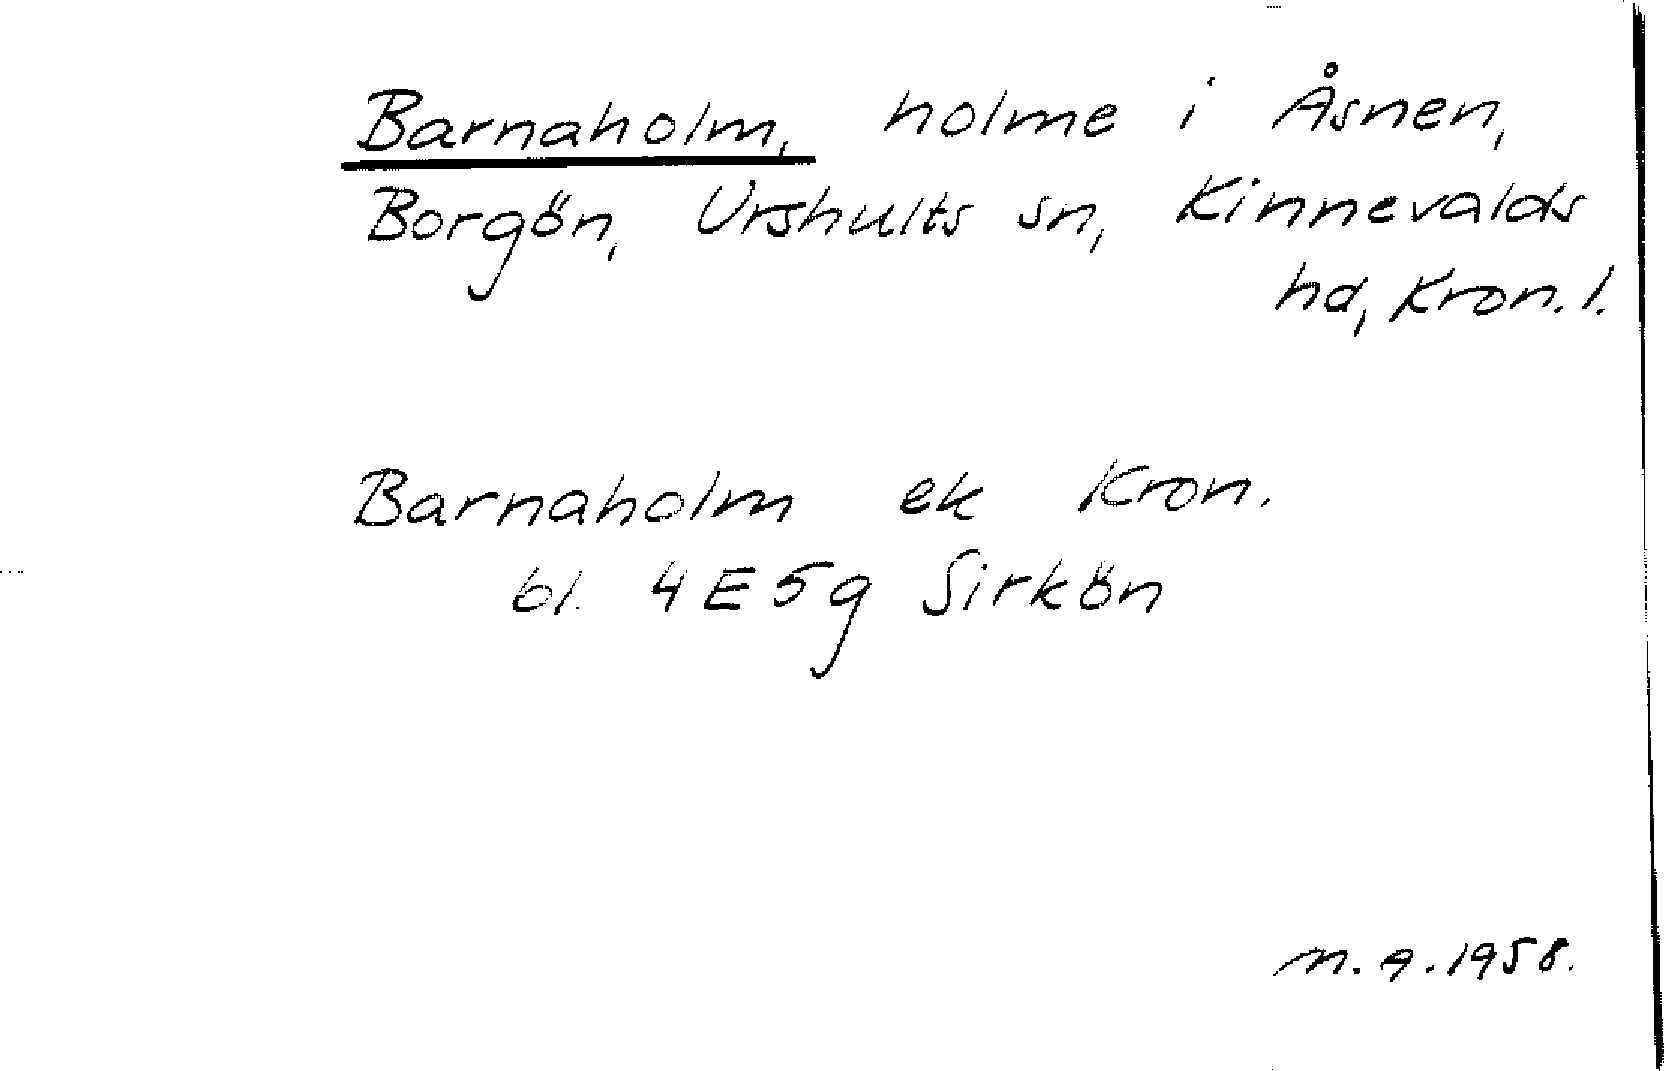 Barnaholm, holme i Åsnen,
Borgön, Urshults sn, Kinnevalds
hd, Kron. l.
Barnaholm ek Kron.
bl. 4E5g Sirkön
M.A. 1958.